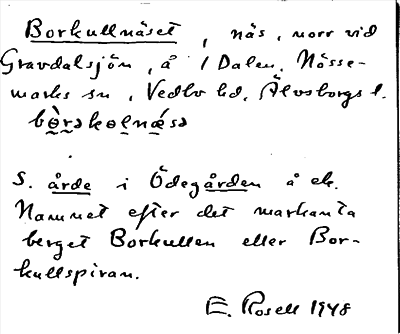 Borkullnäset, näs, norr vid
Gravdalsjön, å 1 Dalen, Nösse-
marks sn, Vedbo hd, Älvsborgs l.
bø̀rəkɵl̥nǽsə
S. årde i Ödegården å ek.
Namnet efter det markanta
berget Borkullen eller Bor-
kullspiran.
E. Rosell 1948